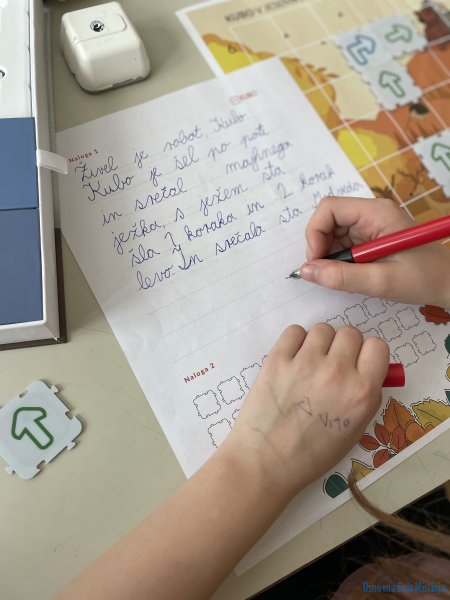 KUBO
Naloga 1
Živel je robot Kubo
Kubo je šel po poti
in srečal majhnega
ježka, s ježem sta
šla 7 koraka in 2 korak
levo In srečala sta
Naloga 2
VITO